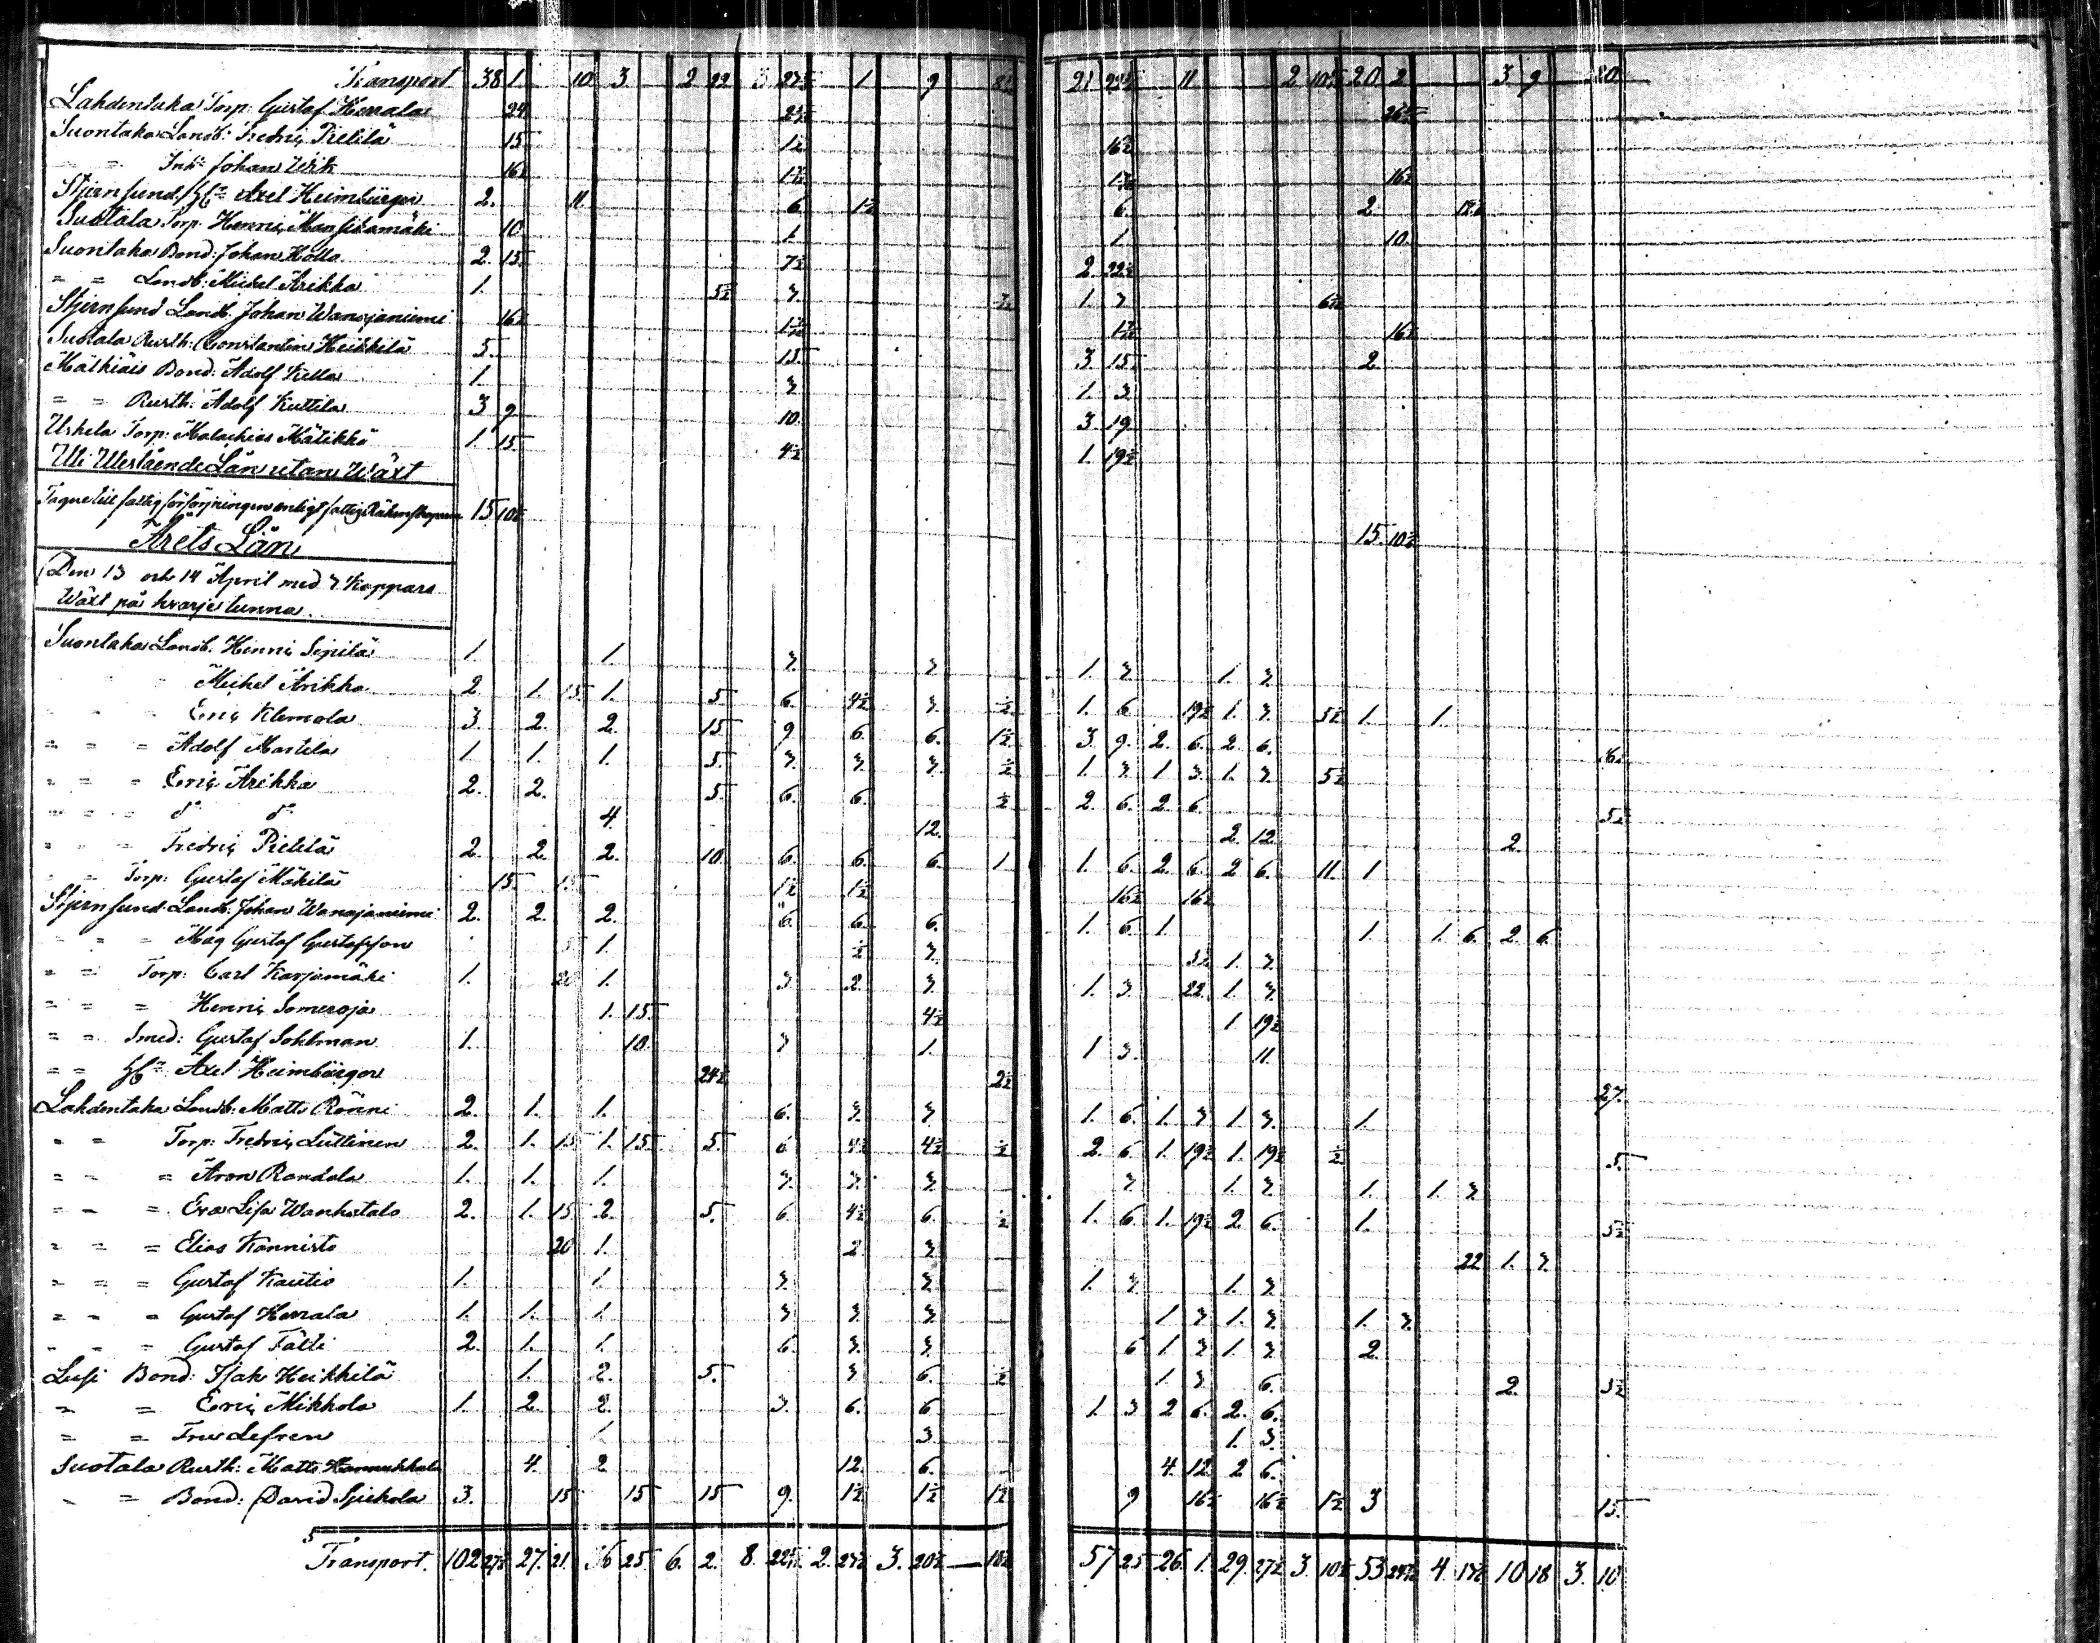 Transport 38 1. 10 3. 2 22 3 27½ 1 9 8½ 21 22½ 11. 2 10½ 20. 2 3 9 20.
Lahdentaka Torp: Gustaf Herrala 24 2½ 26½
Suontaka Landb: Fredric Pietilä 15 1½ 16½
" " Inh: Johan Wik 16½ 16½
Stjernsund Axel Heimbürger 2. 11. 6. 1½ 6. 2.
Suotala Torp. Henric Mansikamäki 10. 1 1. 10.
Suontaka Bond: Johan Kollo 2. 15. 7½ 2. 22½
" " Landb: Michel Arikka 1. 5½ 3. ½ 1. 3 6½
Stjernsund Landb. Johan Wanajaniemi 16½ 16½
Suotala Rusth: Constantin Heikkilä 5. 15. 3 15. 2.
Mälhiäis Bond: Adolf Kella 1. 3 1. 3.
" " Rusth: Adolf Kuttila 3 9. 10. 3. 19
Urhela Torp: Malachias Mätikkö 1. 15 4½ 1. 19½
Uti Utestående Lån utan Wäxt
Tagne till fattigförsörjningen enligt fattig Räkenskaperne 15 10½ 15. 10½
Årets Lån
Den 13 och 14 April med 3 Kappars
Wäxt på hvarje tunna.
Suontaka Landb. Henric Sipilä 1. 1. 3. 3 1. 3. 1. 3.
" Michel Arikka 2. 1. 15. 1. 5 6. 4½ 3. ½ 1. 6. 19½ 1. 3. 5½ 1. 1.
" " " Eric Klemola 3. 2. 2. 15 9 6. 6. 1½ 3. 9. 2. 6. 2. 6. 16½
" " " Adolf Martila 1. 1. 1. 5. 3. 3. 3. ½ 1. 3. 1. 3. 1. 3. 5½
" " " Eeric Arikka 2. 2. 5. 6. 6. ½ 2. 6. 2. 6. 5½
" " " d:o d:o 4. 12. 2. 12. 2.
" " " Fredric Pietilä 2. 2. 2. 10. 6. 6. 6. 1 1. 6. 2. 6. 2. 6. 11. 1
" " Torp: Gustaf Mäkilä 15. 15 1½ 1½ 16½ 16½
Stjernsund Landb. Johan Wanajaniemi 2. 2. 2. 6. 6. 6. 1. 6. 1. 1. 1. 6. 2. 6.
" " " Mag Gustaf Gustafsson 5 1. ½ 3. 5½ 1. 3.
" " Torp: Carl Karjamäki 1. 20 1. 3 2. 3 1. 3. 22. 1. 3.
" " " Henric Someroja 1. 15. 4½ 1 19½
" " Smed: Gustaf Sohlman 1. 10. 3 1. 1 3. 11.
" " Axel Heimbürger 24½ 2½ 27.
Lahdentaka Landb: Matts Rönni 2. 1. 1. 6. 3. 3 1. 6. 1. 3 1. 3. 1.
" " Torp: Fredric Lüttinen 2. 1. 15 1. 15. 5. 6 4½ 4½ ½ 2. 6 1. 19½ 1. 19½ ½ 5.
" " " Aron Randala 1. 1. 1. 3. 3. 3 3 1. 3 1. 1. 3
" " " Eva Lisa Wanhatalo 2. 1. 15 2. 5. 6. 4½ 6. ½ 1. 6. 1. 19½ 2. 6. 1. 5½
" " " Elias Kannisto 20 1. 2 3 22 1. 3.
" " " Gustaf Kautio 1. 1. 3. 3 1. 3. 1. 3
" " " Gustaf Herrala 1. 1. 1. 3 3. 3 1 3 1. 3. 1. 3.
" " " Gustaf Tätti 2. 1. 1. 6. 3. 3 6 1. 3 1. 3. 2.
Lusi Bond: Isak Heikkilä 1. 2. 5. 3 6. ½ 1. 3. 6. 2. 5½
" " Eeric Mikkola 1. 2. 2. 3. 6. 6 1. 3 2 6. 2. 6.
" " Fru Lefren 1 3 1. 3.
Suotala Rusth: Matts Hannukkala 4. 2 12. 6. 4. 12. 2 6.
" " Bond: David Spickola 3. 15 15 15 9. 1½ 1½ 1½ 9 16½ 16½ 1½ 3 15.
Transport. 102 27½ 27. 21. 36 25. 6. 2. 8. 2. 3. 20½ 18½ 57 25 26. 1. 29. 27½ 3. 10½ 53 4. 10 18 3. 10